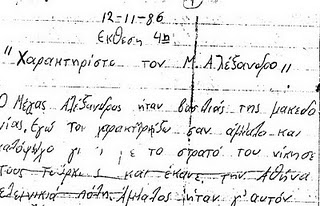 1
12-11-86
Εκθεση 4η
"Χαρακτηρίστε τον Μ. Αλέξανδρο"
Ο Μέγας Αλέξανδρος ήταν βασιλιάς της μακεδο
νίας. Εγώ τον χαρακτιρίζω σαν άρηστο και
γι ε το στρατό του νίκησε
τους τούρκ ς και έκανε την Αθήνα
ελεινικιά πόλη. ήταν γι' αυτόν